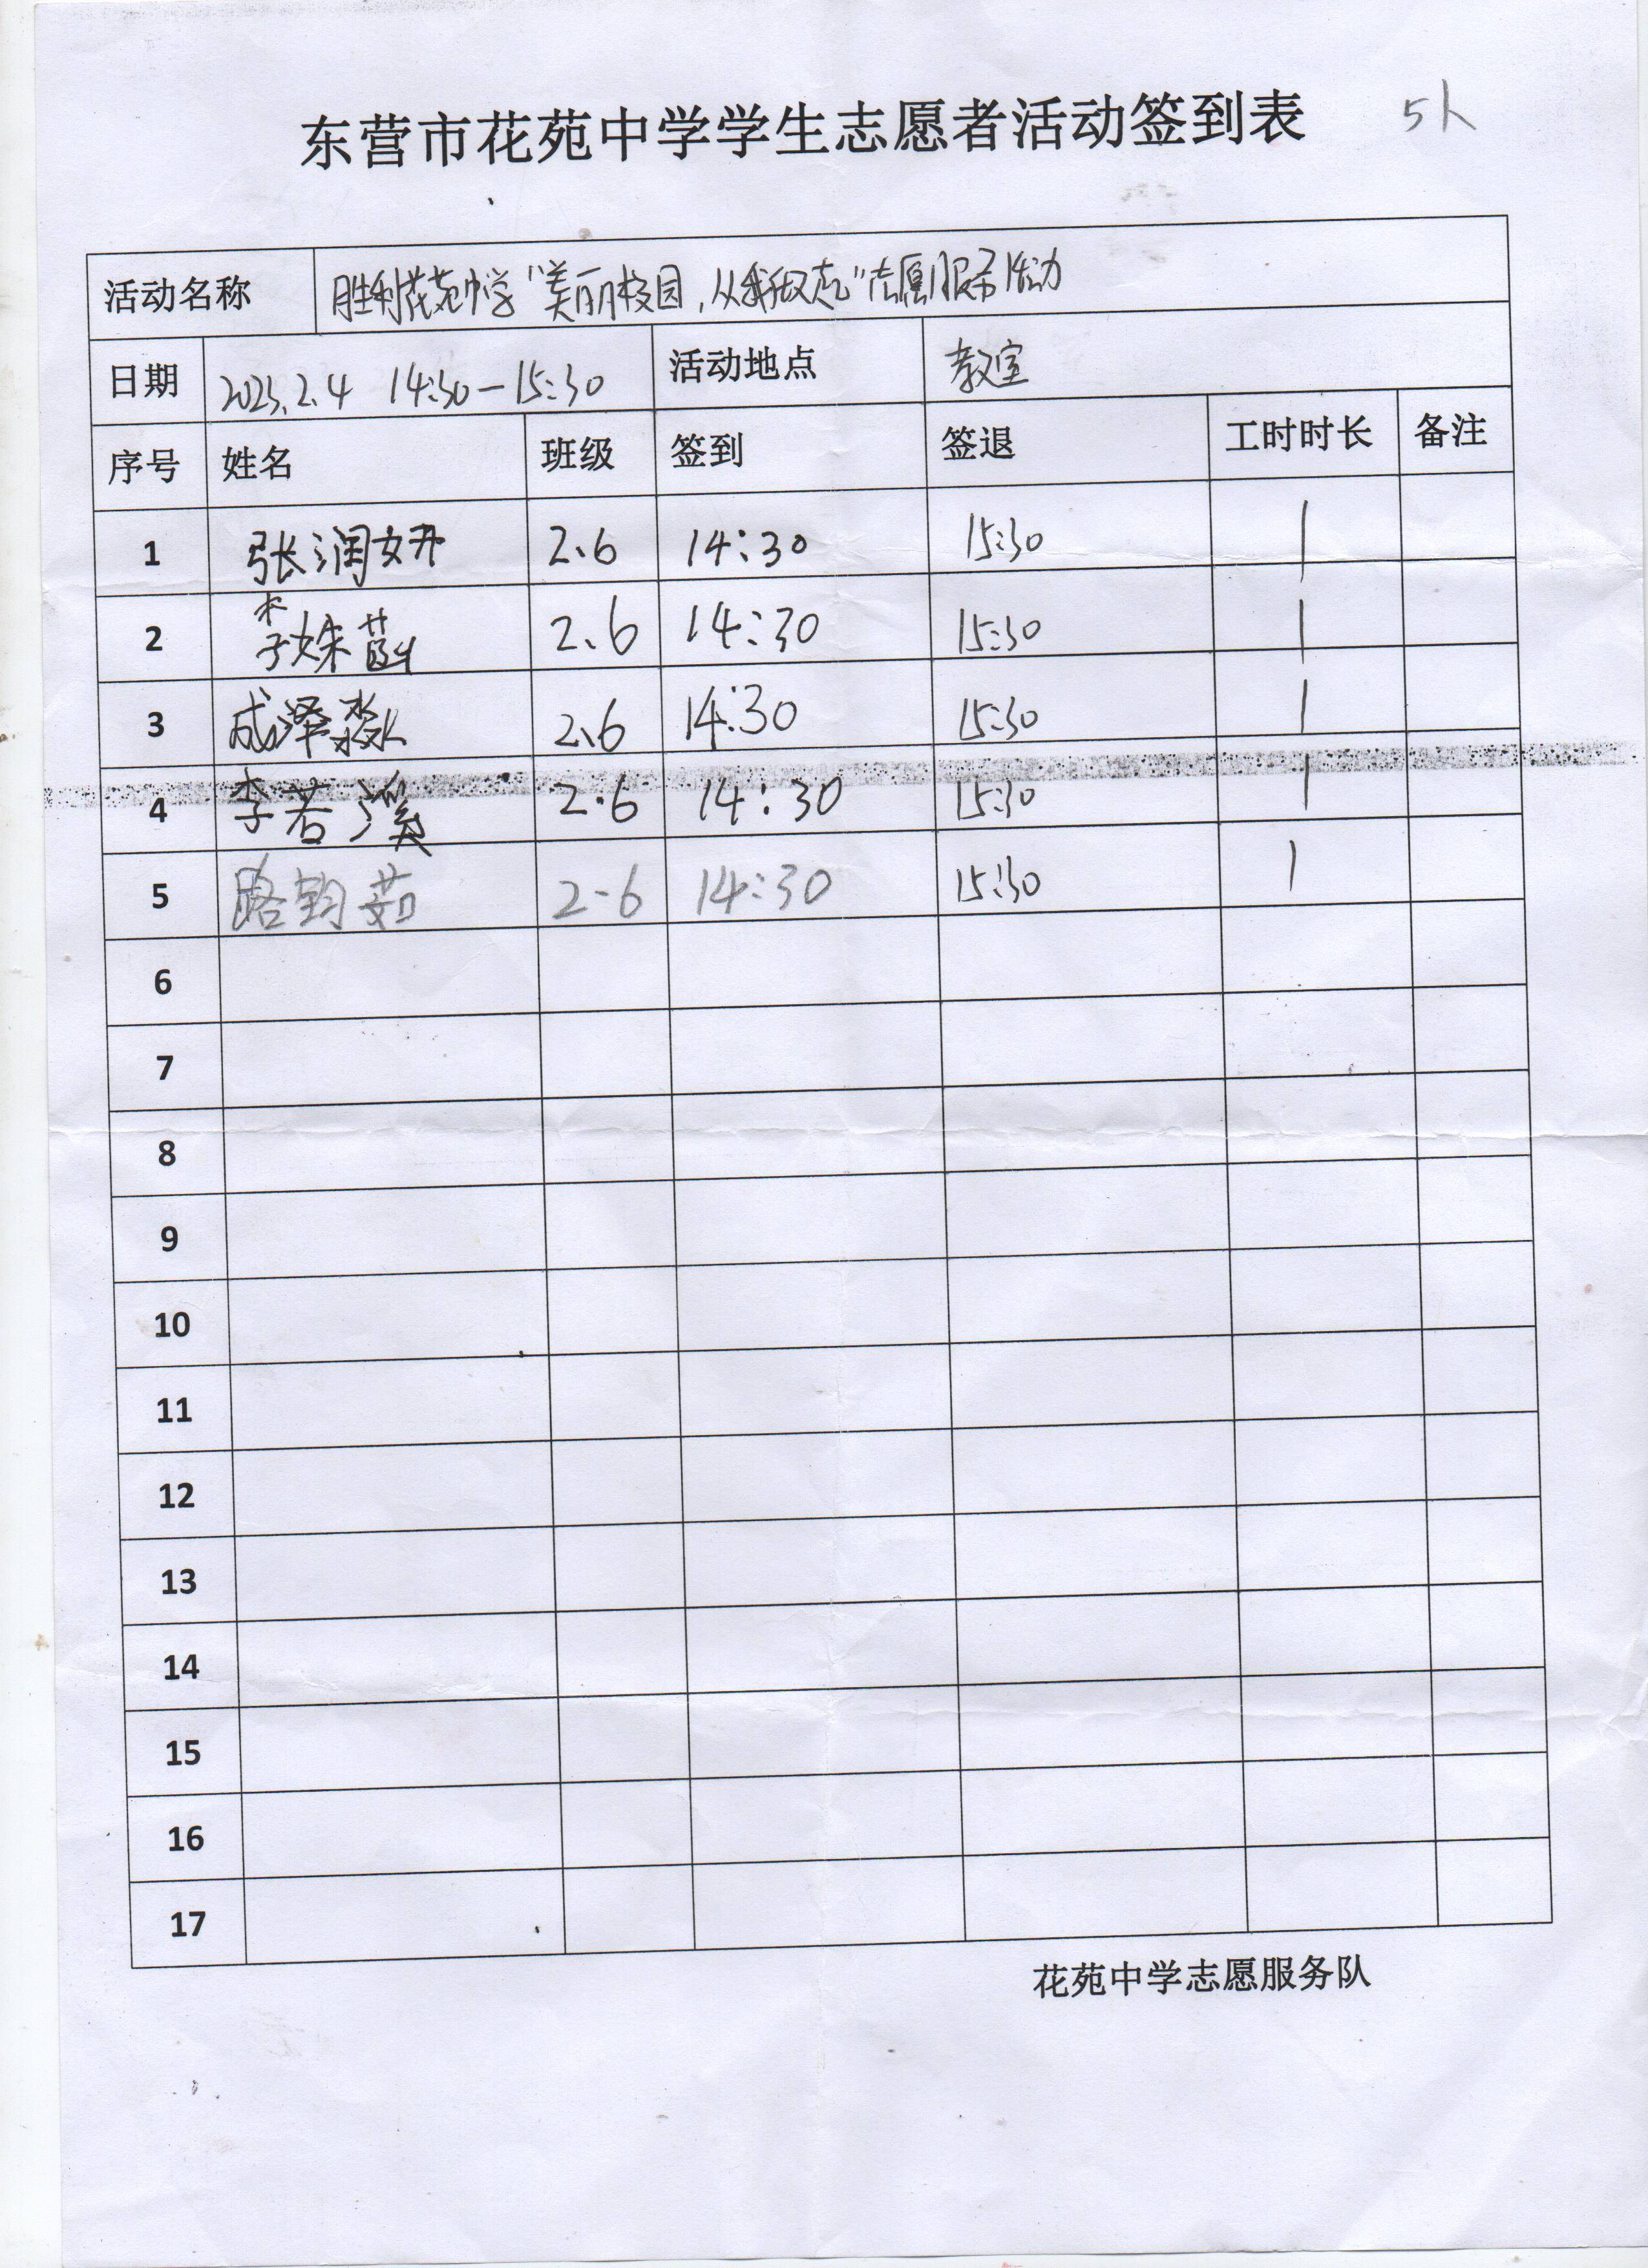 东营市花苑中学学生志愿者活动签到表 5人
活动名称 胜利花苑中学“美丽校园,从我做起”志愿服务活动
日期 2023.2.4 14:30-15:30 活动地点 教室
序号 姓名 班级 签到 签退 工时时长 备注
1 张润妍 2.6 14:30 15:30 1
2 李姝菡 2.6 14:30 15:30 1
3 成泽淼 2.6 14:30 15:30 1
4 李若溪 2.6 14:30 15:30 1
5 路钧茹 2-6 14:30 15:30 1
6
7
8
9
10
11
12
13
14
15
16
17
花苑中学志愿服务队